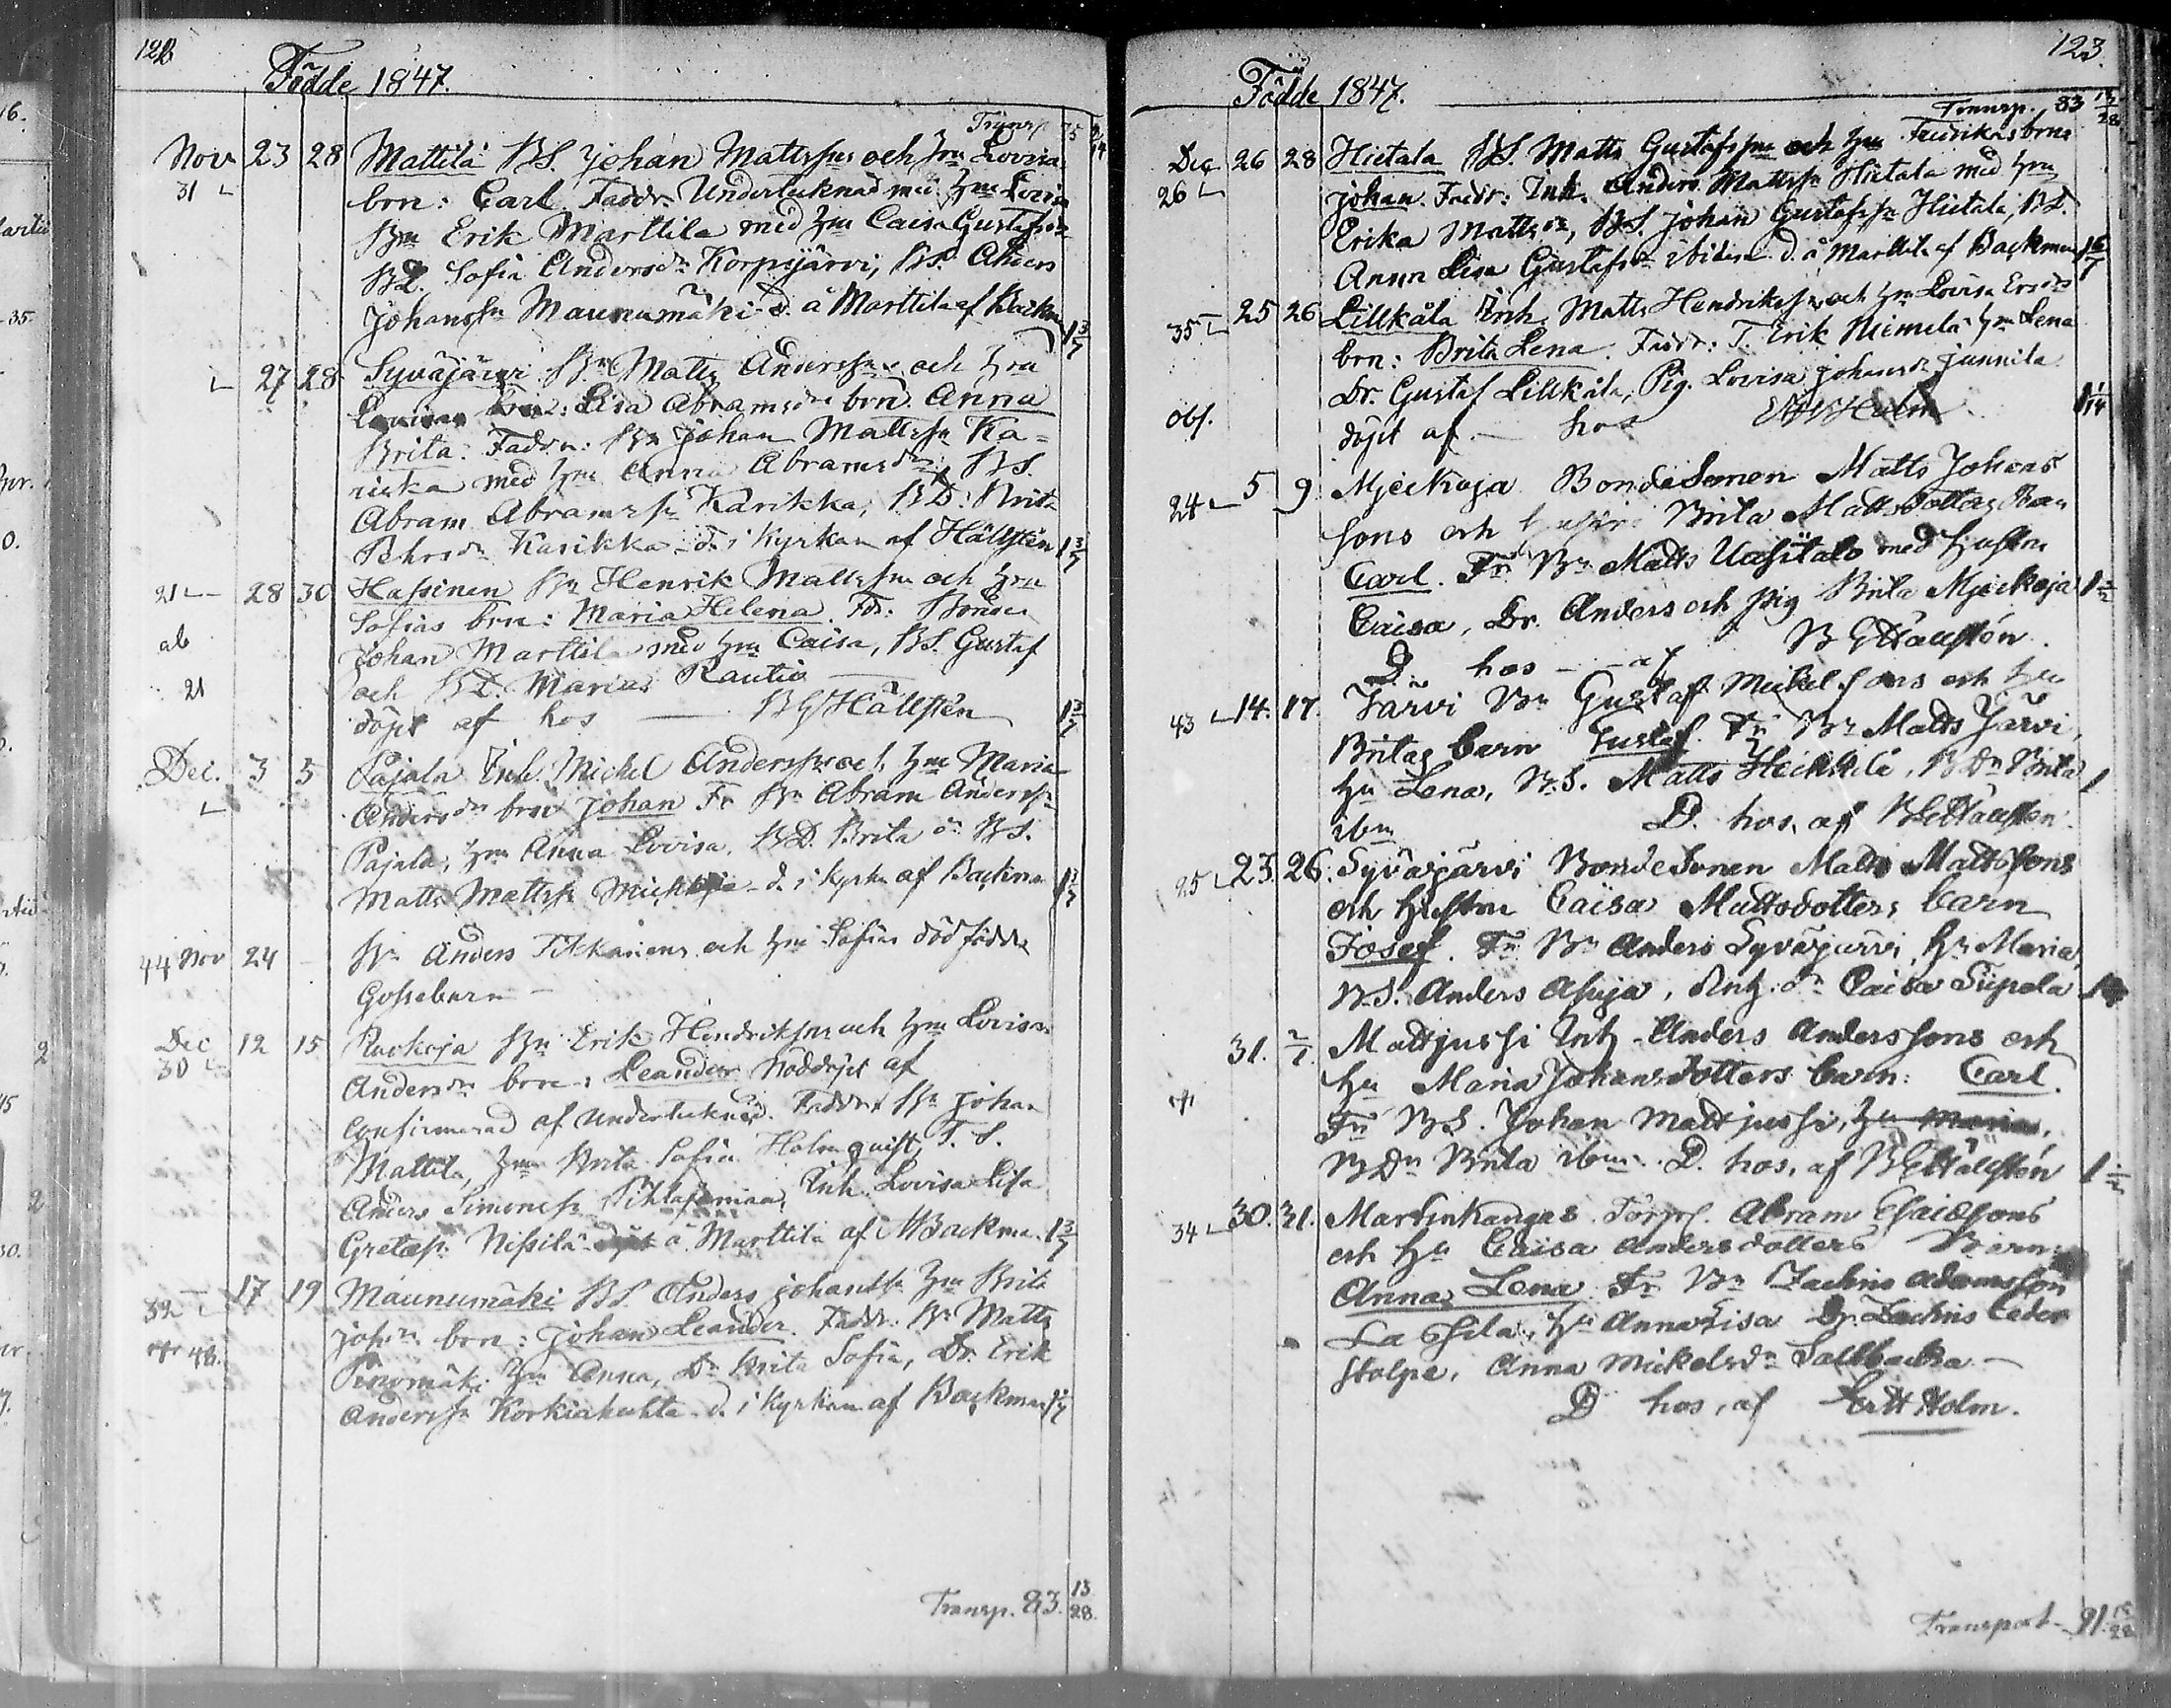 122
Födde 1847.
Transp 75
Nov 23 28 Mattila BS. Johan Mattssns och Hm Lovisa
31 brn: Carl. Faddr. Undertecknad med Hm Lovisa
Bn Erik Marttila med Hm Caisa Gustafsdr
BD. Sofia Andersdr Korpijärvi, BS. Anders
Johanssn Maunumäki d. å Marttila af Backman 1 3/7
27 28 Syväjärvi Bn Matts Anderssns och Hm
Lisa Abramsdrs brn Anna
Brita. Faddr: Bn Johan Mattssn Ka=
rikka med Hm Anna Abramsdr, BS.
Abram Abramssn Karikka, BD. Brita
Pehrsdr Karikka d. i Kyrkan af Hällstén 1 3/7
21 28 30 Hassinen Bn Henrik Mattssns och Hm
Sofias brn: Maria Helena. Fdr: Bonden
ab Johan Marttila med Hm Caisa, BS. Gustaf
21 och BD. Maria Rautio
döpt af hos BGHällstén 1 3/7
Dec. 3 5 Pajala Inh. Michel Anderssns och Hm Maria
Andersdrs brn Johan Fr Bn Abram Anderssn
Pajala, Hm Anna Lovisa. BD. Brita o BS.
Matts Mattssn d. i Kyrkan af Backman 1 3/7
44 Nov 24 – Bn Anders Tikkanens och Hm Sofias dödfödda
Gossebarn –
Dec 12 15 Ruokoja Bn Erik Hendrikssns och Hm Lovisa
30 Andersdrs brn: Leander Nöddöpt af
Confirmerad af undertecknad. Faddr: Bn Johan
Mattila, Hm Brita Sofia Holmquist, T.S.
Anders Simonssn Pihlajamaa, Inh. Lovisa Lisa
Gretas Nissilä döpt å Marttila af Backman 1 3/7
32 17 19 Maunumäki BS. Anders Johanssn Hm Brita
Johsdrs brn: Johan Leander. Faddr. Bn Matts
Penomäki Hm Anna, Dr Brita Sofia, Dr. Erik
Anderssn Korkiakuhta d. i Kyrkan af Backman
Transp. 83. 13/28.
123.
Födde 1847.
Transp. 83 13/28
Dec 26 28 Hietala BS. Matts Gustafssns och Hm Fredrikas brns
26 Johan. Faddr: Inh. Anders Mattssn Hietala med Hm
Erika Mattsdr, BS. Johan Gustafssn Hietala, BD.
Anna Lisa Gustafsdr ibidem d. å Marttila af Backman 1 6/7
35 25 26 Lillkåla Inh. Matts Hendrikssns och Hm Lovisa Ersdrs
brn: Brita Lena. Faddr: T. Erik Niemelä Hm Lena
Dr. Gustaf Lillkåla, Pig. Lovisa Johansdr Junnila
Obs. döpt af – hos Holm 1 1/14
24 5 9 Mjeckoja Bondesonen Matts Johans
sons och hustru Brita Mattsdotters Barn
Carl. Fr Bn Matts Uusitalo med hustru
Caisa, Dr. Anders och pig Brita Mjeckoja 1 1/2
D. hos – af BGHällstén.
43 14. 17. Järvi Bn Gustaf Mickelsons och Hu
Britas barn Gustaf. Fr Bn Matts Järvi,
Hu Lena, B.S. Matts Heikkilä, BDr Brita 1
ibm D. hos, af BGHällstén.
25 23. 26. Syväjärvi BondeSonen Matts Mattssons
och hustru Caisa Mattsdotters barn
Josef. Fr Bn Anders Syväjärvi, Hu Maria,
B.S. Anders Ahuja, Inh. dr Caisa Siipola
31. 2/1. Mattjussi Inh. Anders Anderssons och
Hu Maria Johansdotters barn: Carl.
Fr BS. Johan Mattjussi, Hu Maria,
BDr Brita ibm. D. hos, af BGHällstén 1 1/2
34 30. 31. Martinkangas Torpr. Abram Esaiessons
och Hu Caisa Andersdotters Barn:
Anna Lena. Fr Bn Zachris Adamsson
Lassila, Hu Anna Lisa Dr. Zachris Ceder
stolpe, Anna Mickelsdr Sallbacka –
D hos, af Holm.
Transport 91. 15/28